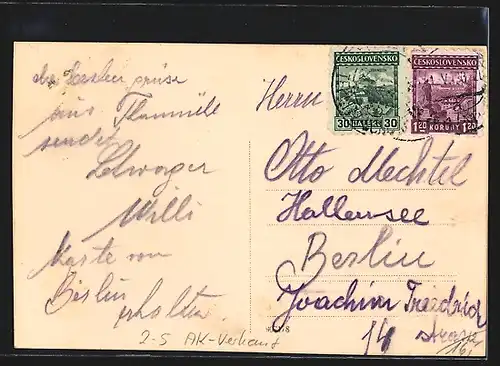 die besten grüsse
aus Thurmühle
sendet
Schwager
Willi
Karte von
Berlin
erhalten.
Herrn
Otto Mechtel
Hallensee
Berlin
Joachim Friedrich
14 strasse
ČESKOSLOVENSKO
30 HALÉŘŮ 30
ČESKOSLOVENSKO
1.20 KORUNY 1.20
2-5 AK-Verkauf